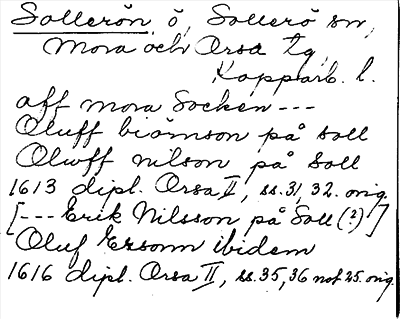 Sollerön ö, Sollerö sn,
Mora och Orsa tg,
Kopparb. l.
aff mora Socken ---
Oluff biörnson på soll
Olwff nilson på Soll
1613 dipl. Orsa II, ss. 31, 32. orig.
[--- Erik Nilsson på Soll (?)]
Oluf Ersonn ibidem
1616 dipl. Orsa II, ss. 35, 36 not 25. orig.